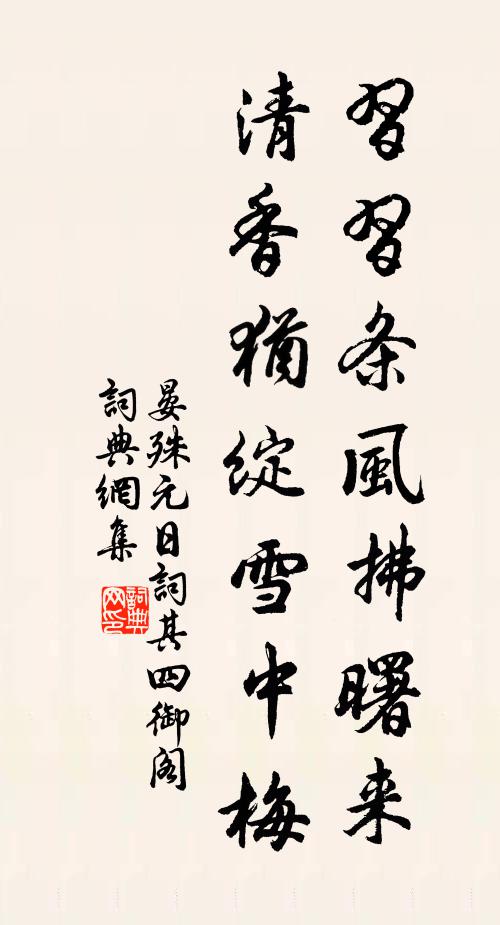 習習条風拂曙来
清香猶綻雪中梅
晏殊元日詞其四御阁
詞典網集
詞典网印